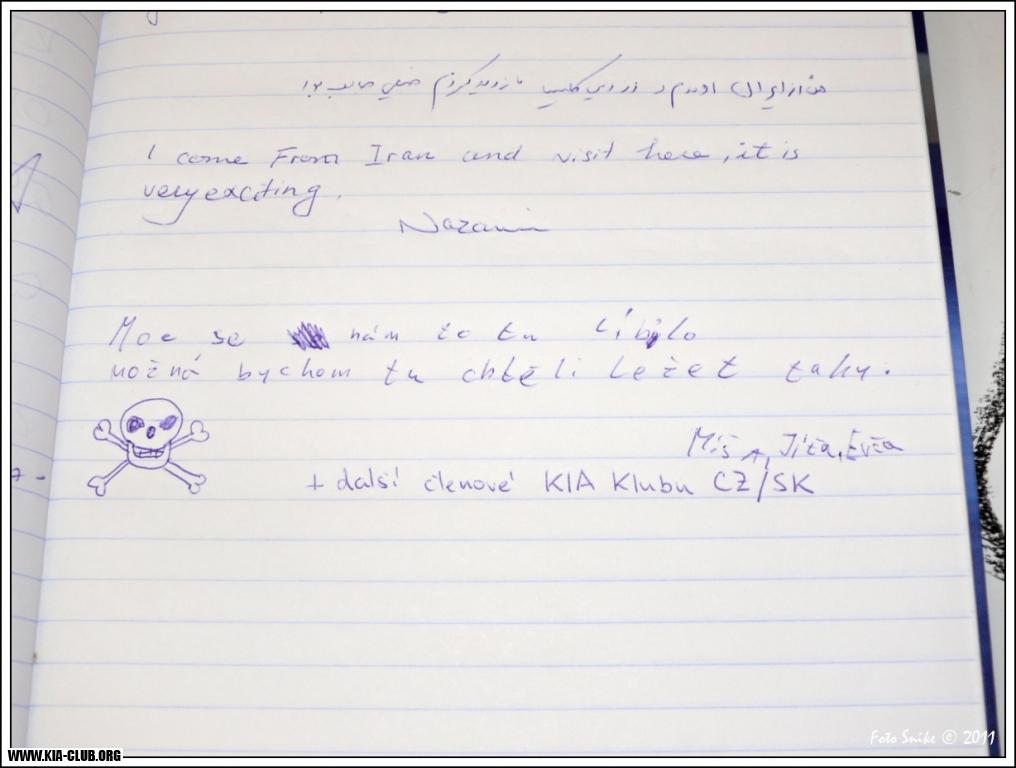 من از ایران اومدم و از این کلیسا بازدید کردم خیلی جالب بود
I come From Iran and visit here, it is
very exciting.
Nazanin
Moc se nám to tu líbilo
možná bychom tu chtěli ležet taky.
Míša, Jíťa, Evča
+ další členové KIA Klubu CZ/SK
WWW.KIA-CLUB.ORG
Foto Snike © 2011